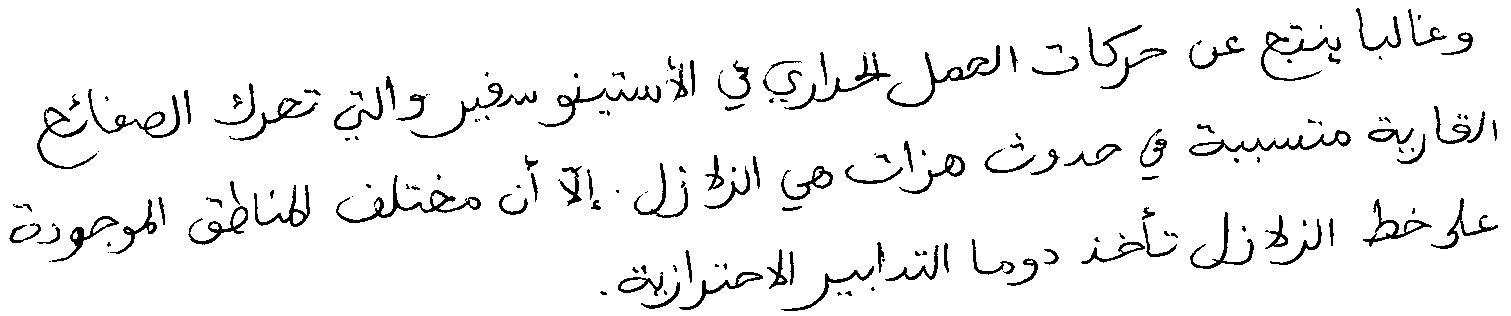 وغالبا ينتج عن حركات الحمل الحراري في الأستينوسفير والتي تحرك الصفائح
القارية متسببة في حدوث هزات هي الزلازل. إلّا أن مختلف المناطق الموجودة
على خط الزلازل تأخذ دوما التدابير الاحترازية.